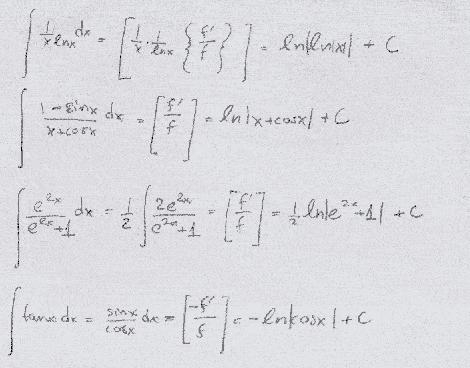 ∫ 1/(x lnx) dx = [1/x · 1/lnx {f'/f}] = ln|lnx| + C
∫ (1-sinx)/(x+cosx) dx = [f'/f] = ln|x+cosx| + C
∫ e^{2x}/(e^{2x}+1) dx = 1/2 ∫ 2e^{2x}/(e^{2x}+1) = [f'/f] = 1/2 ln|e^{2x}+1| + C
∫ tanx dx = sinx/cosx dx = [-f'/f] = -ln|cosx| + C